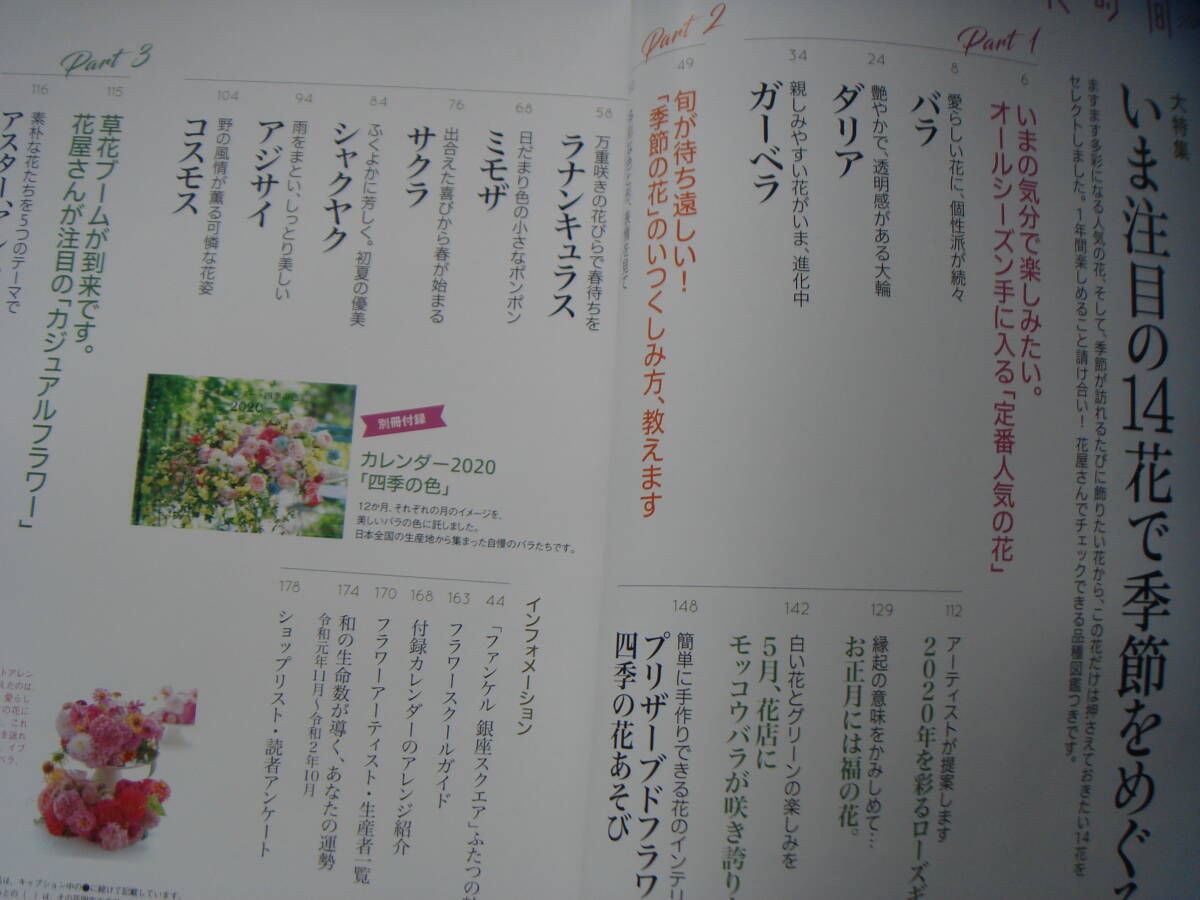 大特集
いま注目の14花で季節をめぐる
ますます多彩になる人気の花、そして、季節が訪れるたびに飾りたい花から、この花だけは押さえておきたい14花を
セレクトしました。1年間楽しめること請け合い！ 花屋さんでチェックできる品種図鑑つきです。
Part 1
6
いまの気分で楽しみたい。
オールシーズン手に入る「定番人気の花」
8
愛らしい花に、個性派が続々
バラ
24
艶やかで、透明感がある大輪
ダリア
34
親しみやすい花がいま、進化中
ガーベラ
Part 2
49
旬が待ち遠しい！
「季節の花」のいつくしみ方、教えます
58
万重咲きの花びらで春待ちを
ラナンキュラス
68
日だまり色の小さなポンポン
ミモザ
76
出合えた喜びから春が始まる
サクラ
84
ふくよかに芳しく。初夏の優美
シャクヤク
94
雨をまとい、しっとり美しい
アジサイ
104
野の風情が薫る可憐な花姿
コスモス
Part 3
115
草花ブームが到来です。
花屋さんが注目の「カジュアルフラワー」
116
素朴な花たちを5つのテーマで
アスター、
112
アーティストが提案します
2020年を彩るローズギ
129
縁起の意味をかみしめて…
お正月には福の花。
142
白い花とグリーンの楽しみを
5月、花店に
モッコウバラが咲き誇り
148
簡単に手作りできる花のインテリ
プリザーブドフラワ
四季の花あそび
2020
別冊付録
カレンダー2020
「四季の色」
12か月、それぞれの月のイメージを、
美しいバラの色に託しました。
日本全国の生産地から集まった自慢のバラたちです。
インフォメーション
44
「ファンケル 銀座スクエア」ふたつの
163
フラワースクールガイド
168
付録カレンダーのアレンジ紹介
170
フラワーアーティスト・生産者一覧
174
和の生命数が導く、あなたの運勢
令和元年11月〜令和2年10月
178
ショップリスト・読者アンケート
トアレン
えたのは、
愛らし
の花に
これ
を語れ
イブ
ベラ。
は、キャプション中の●に続けて記載しています。